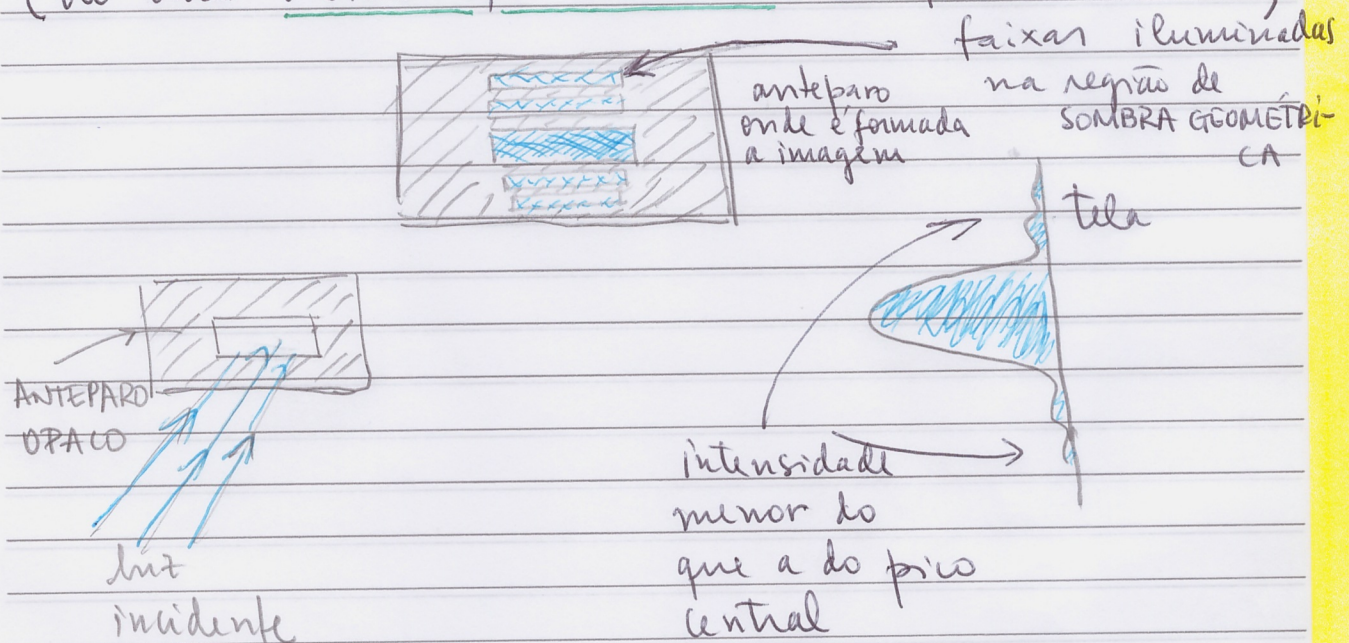 faixas iluminadas
na região de
SOMBRA GEOMÉTRI-
CA
anteparo
onde é formada
a imagem
tela
ANTEPARO
OPACO
luz
incidente
intensidade
menor do
que a do pico
central